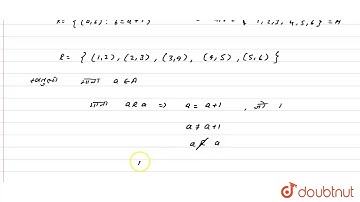 R = { (a,b) : b = a+1 } { 1, 2, 3, 4, 5, 6 } = A
R = { (1,2), (2,3), (3,4), (4,5), (5,6) }
स्वतुल्य माना a ∈ A
माना a R a ⇒ a = a+1 , जो 1
a ≠ a+1
a R̸ a
doubtnut